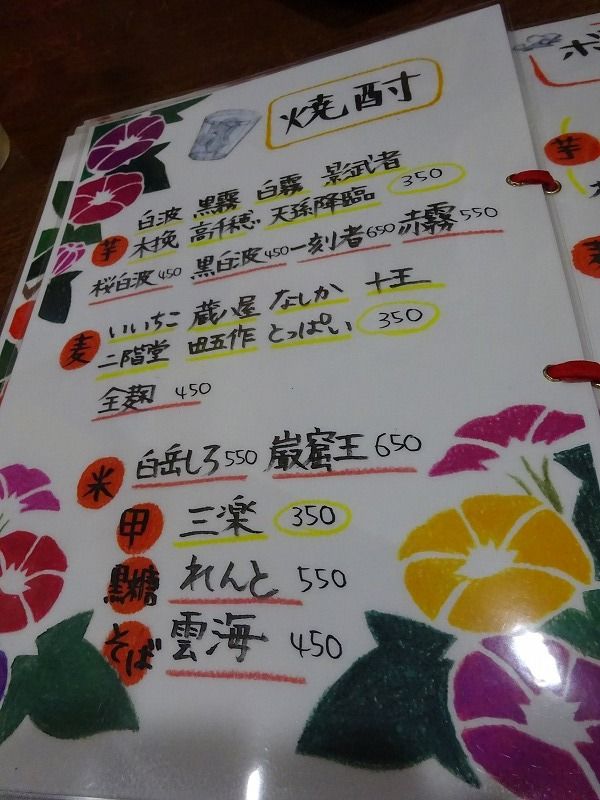 焼酎
白波 黒霧 白霧 影武者
芋 木挽 高千穂 天孫降臨 350
桜白波 450 黒白波 450 一刻者 650 赤霧 550
いいちこ 蔵の屋 なしか 十王
麦 二階堂 田五作 とっぱい 350
全麹 450
米 白岳しろ 550 巌蜜王 650
甲 三楽 350
黒糖 れんと 550
そば 雲海 450
芋